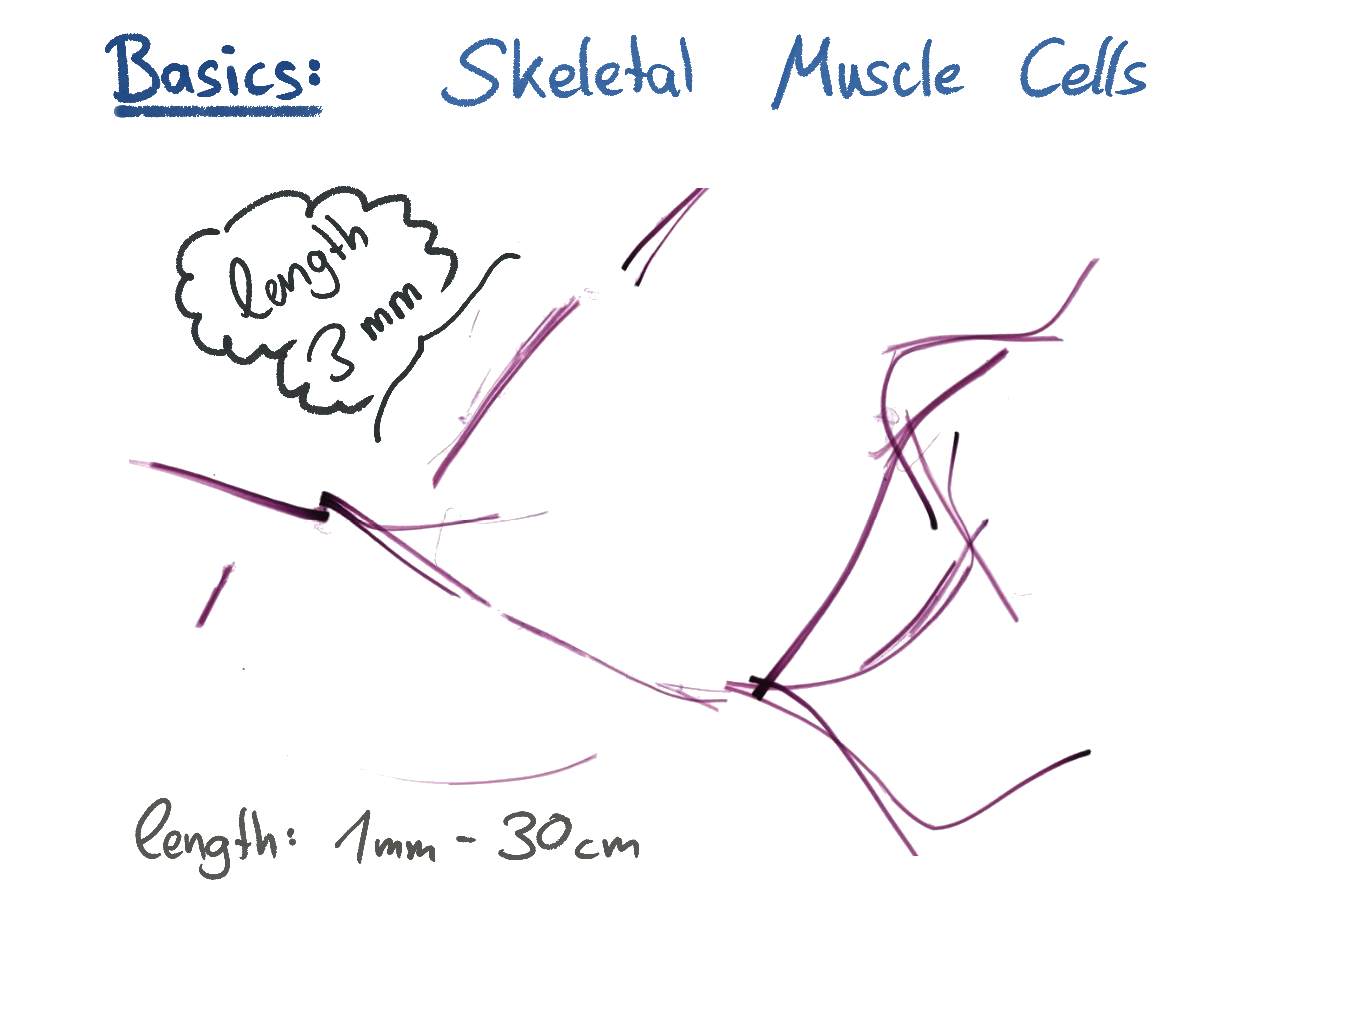 Basics: Skeletal Muscle Cells
length
3 mm
length: 1mm - 30cm